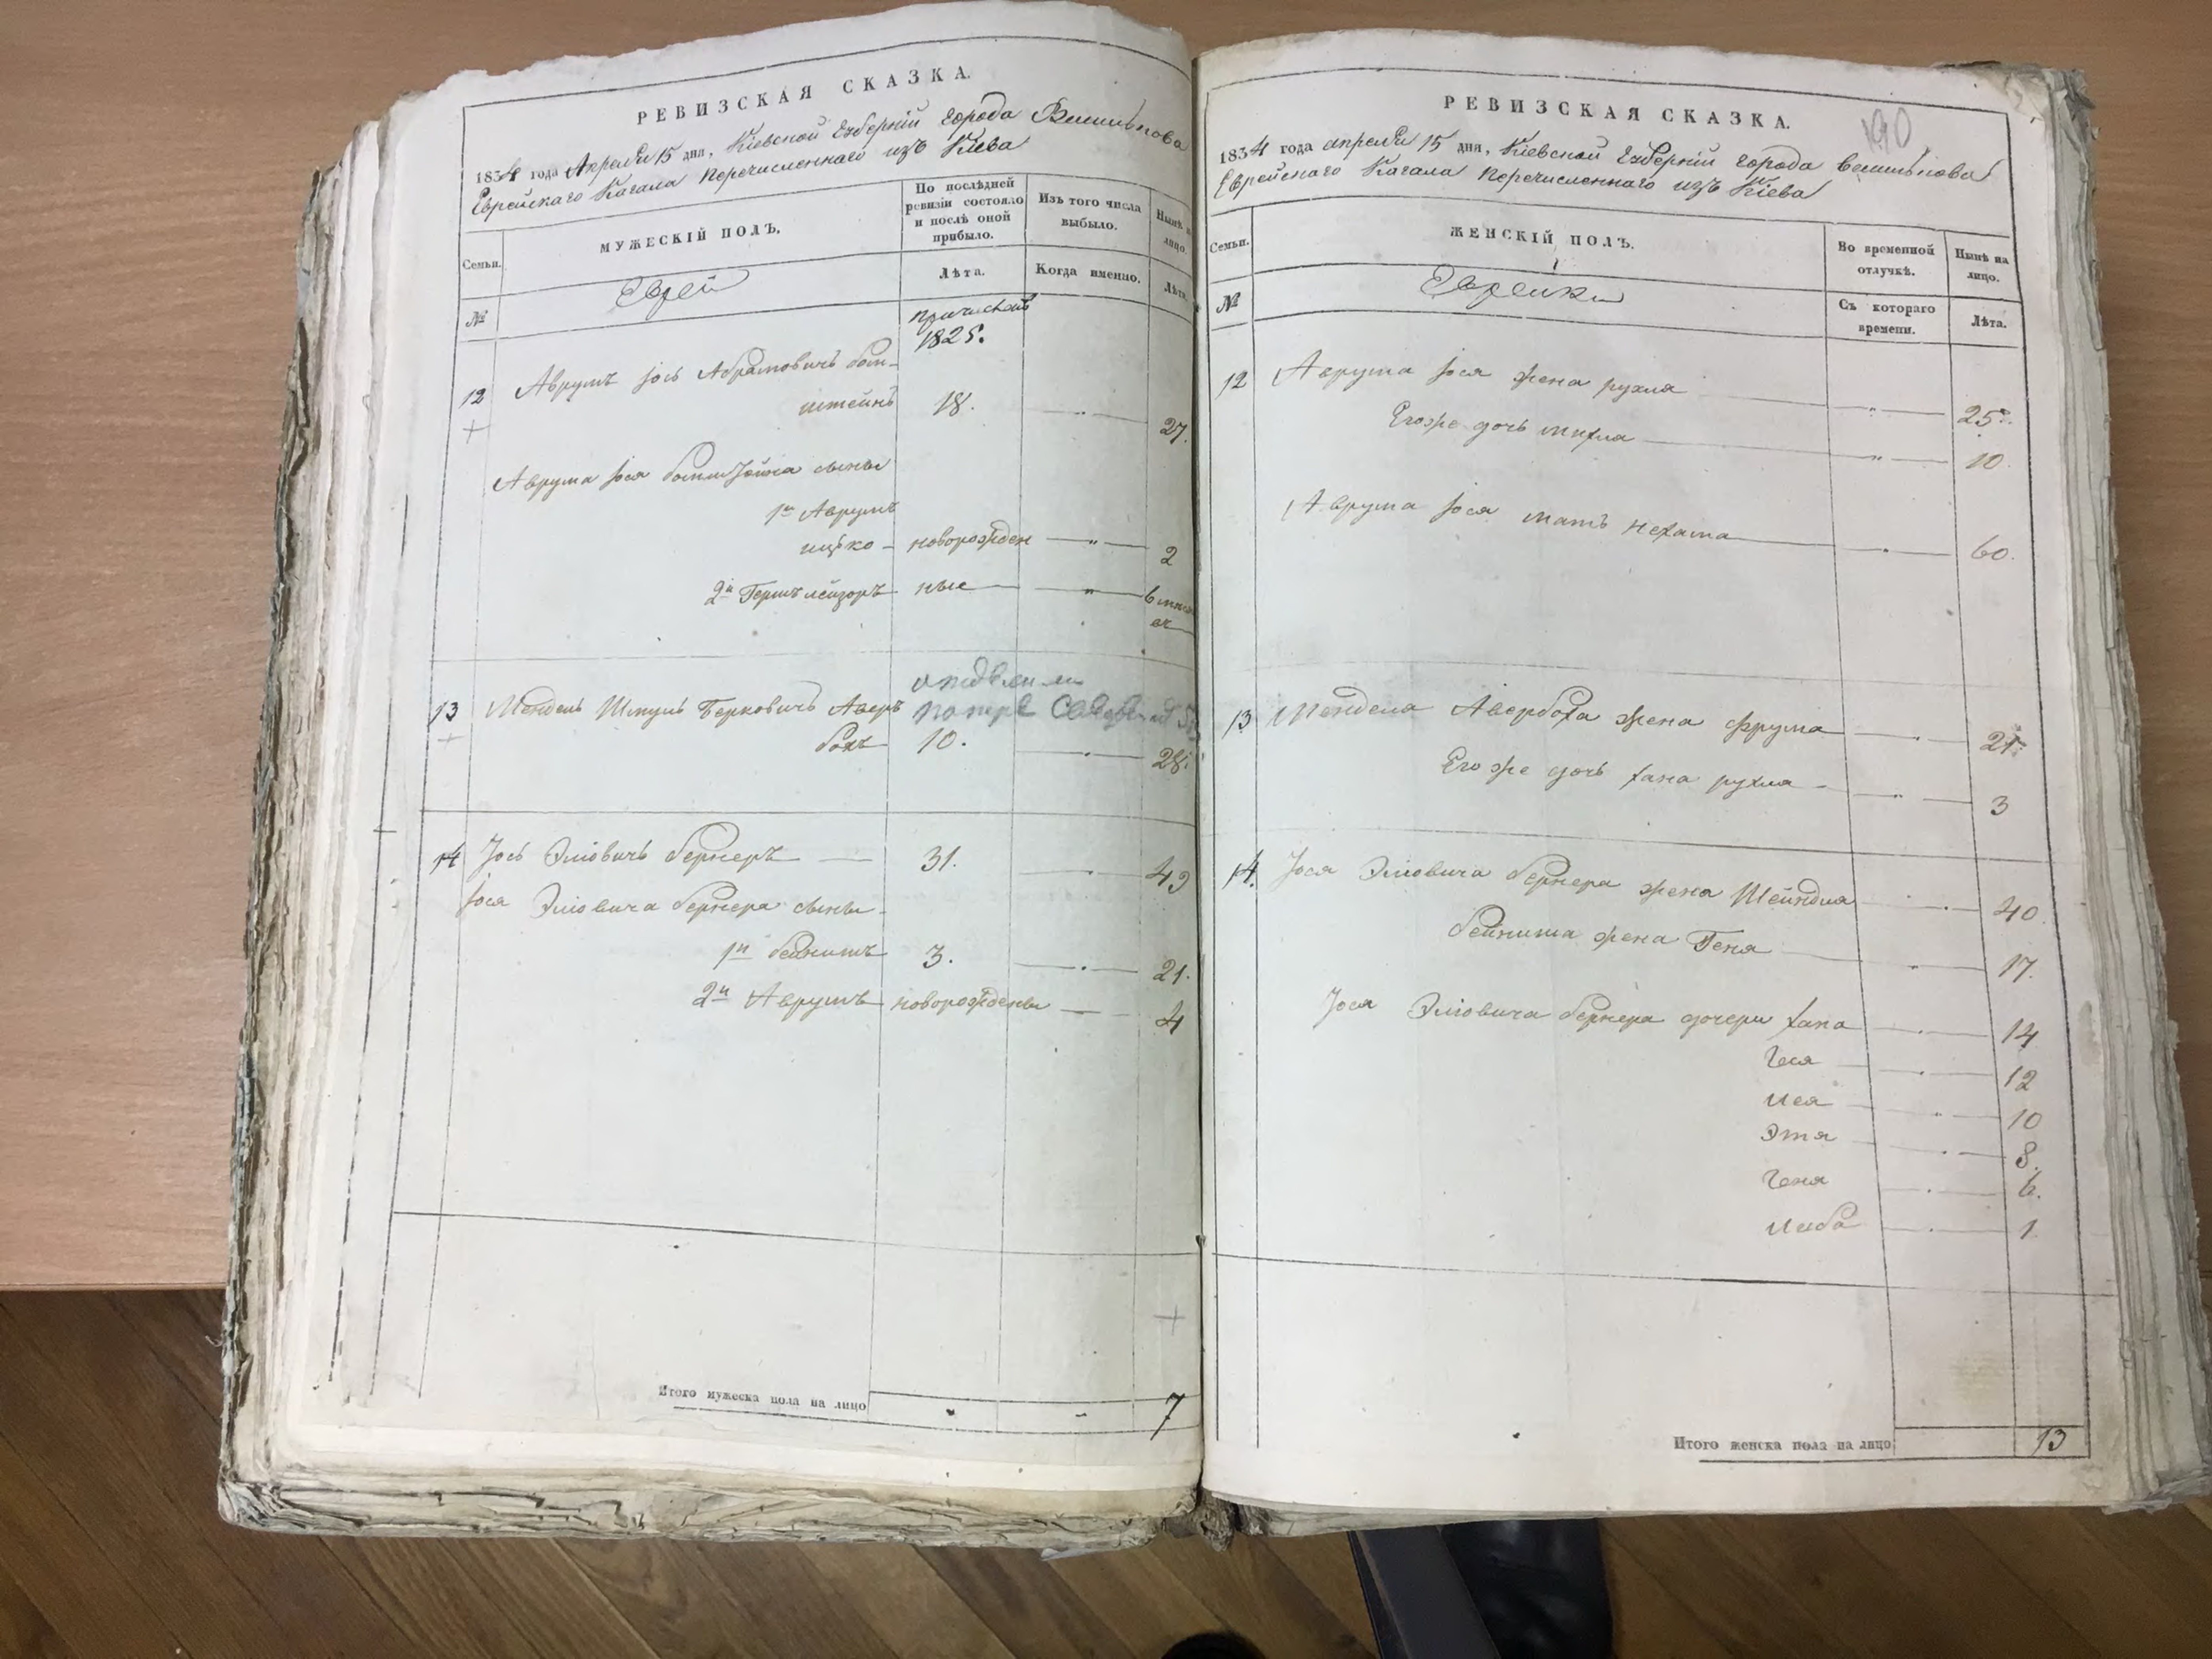 РЕВИЗСКАЯ СКАЗКА.
1834 года Апреля 15 дня, Кіевской Губерніи города Василькова
Еврейскаго Кагала перечисленнаго изъ Кіева
Семьи.
МУЖЕСКІЙ ПОЛЪ.
По послѣдней ревизіи состояло и послѣ оной прибыло.
Изъ того числа выбыло.
Нынѣ на лицо.
№
Еврей
Лѣта.
Когда именно.
Лѣта.
1825.
12 Аврумъ Іось Абрамовичъ бом-
штейнъ 18. 27.
Аврума Іося сыны
1й Аврумъ
ицько новорожден 2
2й Гершъ лейзоръ ные 6
13 Мендель Шмуль Берковичъ Авер
бохъ 10. 28.
14 Іось Эліовичъ бернеръ 31. 49
Іося Эліовича бернера сыны
1й бейнишъ 3. 21.
2й Аврумъ новорожденны 4
Итого мужеска пола на лицо 7
РЕВИЗСКАЯ СКАЗКА.
190
1834 года апреля 15 дня, Кіевской Губерніи города василькова
Еврейскаго Кагала перечисленнаго изъ Кіева
Семьи.
ЖЕНСКІЙ ПОЛЪ.
Во временной отлучкѣ.
Нынѣ на лицо.
№
Еврейки
Съ котораго времени.
Лѣта.
12 Аврума Іося жена рухля 25.
Егоже дочь 10.
Аврума Іося мать нехама 60.
13 Менделя Авербоха жена фрума 21
Его же дочь хана рухля 3
14. Іося Эліовича бернера жена Шейндля 40
бейниша жена Геня 17.
Іося Эліовича бернера дочери хана 14
12
10
Этя 8.
6.
1
Итого женска пола на лицо 13